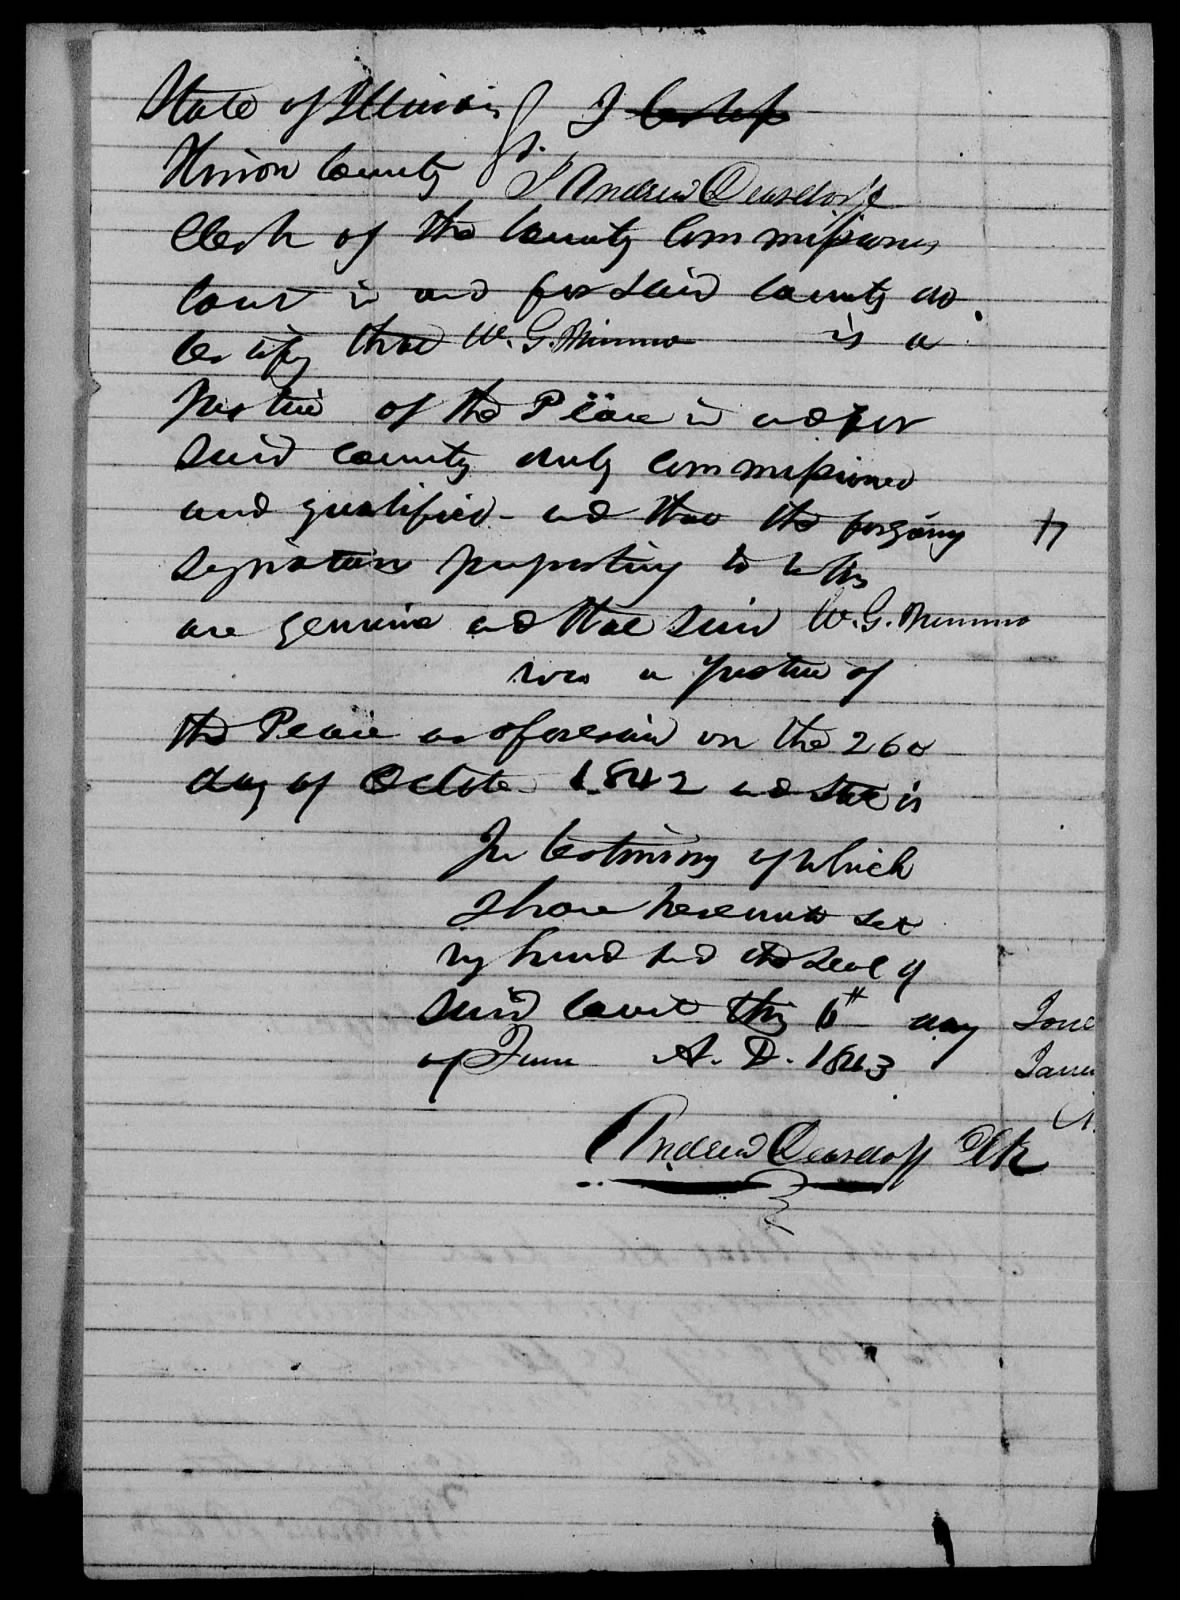 State of Illinois } I
Union County } S. I Andrew Deardorff
Clerk of the County Commissioners
Court in and for said County do
Certify that W. G. Mimmo is a
Justice of the Peace in and for
said County duly Commissioned
and qualified - and that the forgoing
signatures purporting to be his
are genuine and that said W. G. Mimmo
was a Justice of
the Peace as aforesaid on the 26th
day of October 1842 and still is
In testimony of which
I have hereunto set
my hand and the seal of
said Court this 6th day
of June A. D. 1843
Andrew Deardorff Clk